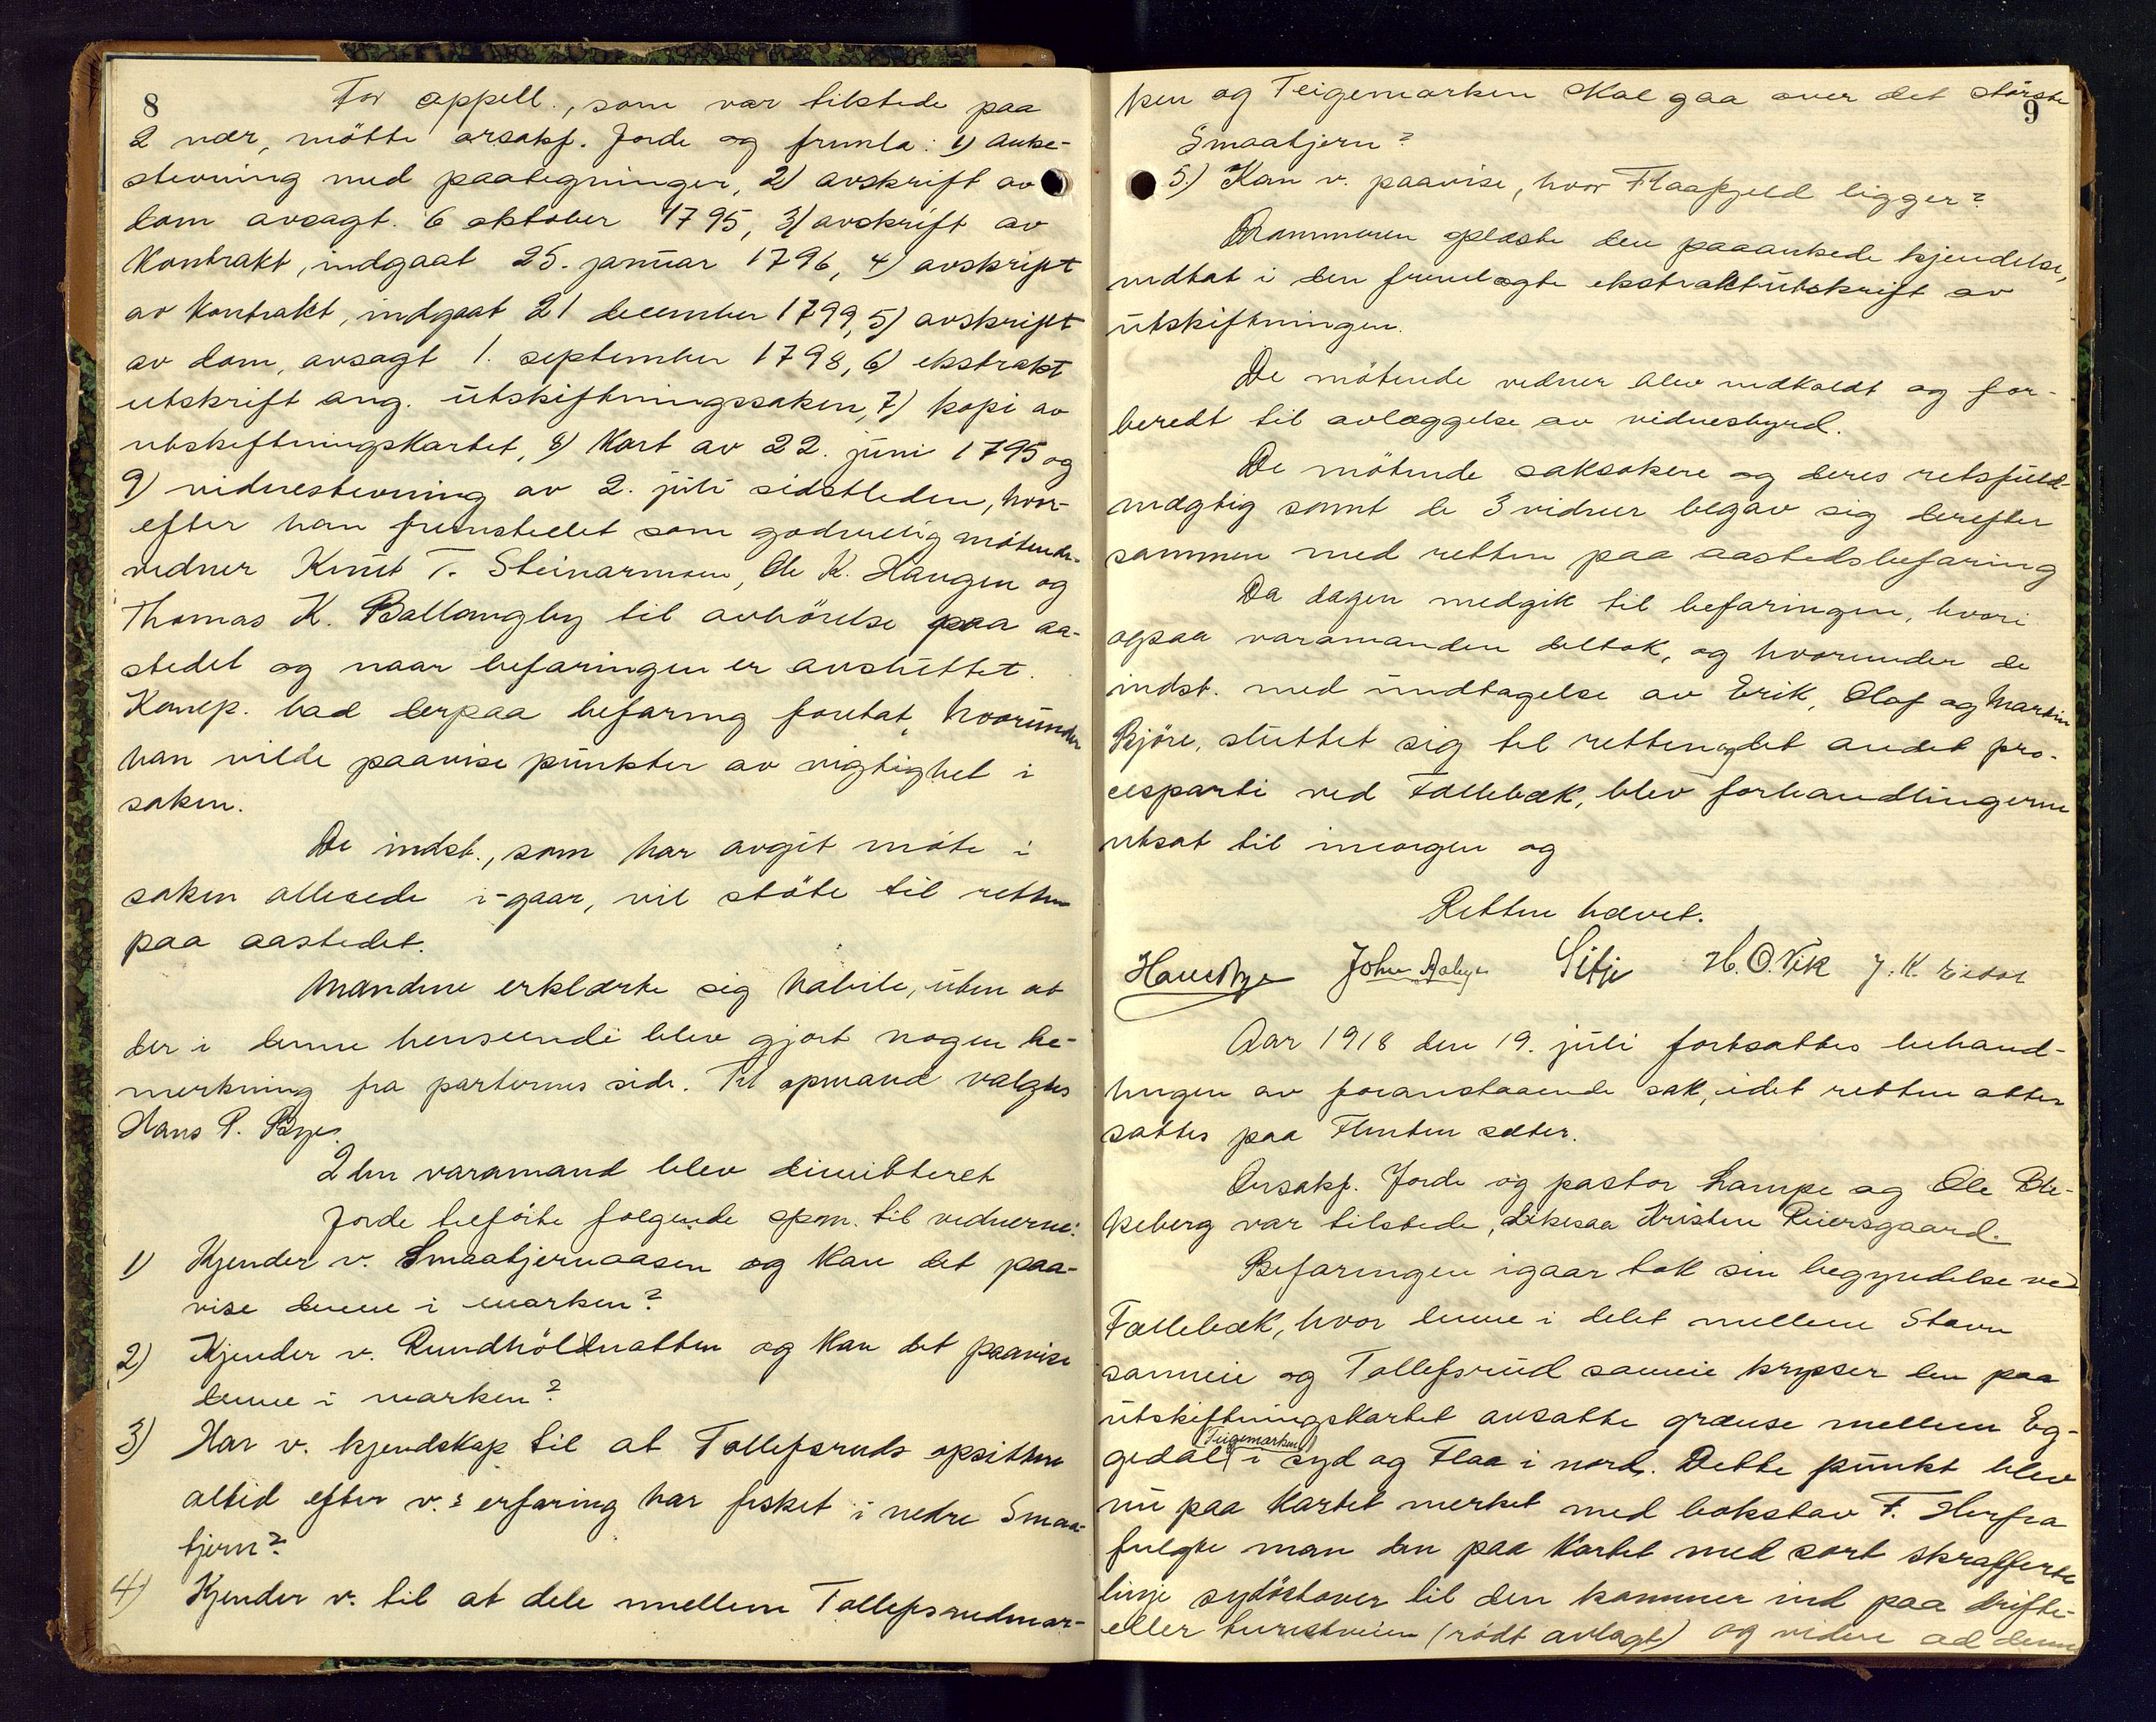 8
For appell., som var tilstede paa
2 nær, mötte orsakf. Jorde og fremla: 1) Anke-
stevning med paategninger, 2) avskrift av
dom avsagt 6 oktober 1795, 3) avskrift av
Kontrakt, indgaat 25. januar 1796, 4) avskrift
av Kontrakt, indgaat 21 december 1799, 5) avskrift
av dom, avsagt 1. september 1798, 6) ekstrakt
utskrift ang. utskiftningssaken, 7) kopi av
utskiftningskartet, 8) Kart av 22. juni 1795 og
9) vidnestevning av 2. juli sidstleden, hvor-
efter han fremstillet som godvillig mötende
vidner Knut T. Steinarmoen, Ole K. Haugen og
Thomas K. Ballangby til avhörelse paa aa-
stedet og naar befaringen er avsluttet.
Komp. bad derpaa befaring foretat, hvorunder
han vilde paavise punkter av vigtighet i
saken.
De indst., som har avgit möte i
saken allerede i-gaar, vil stöte til retten
paa aastedet.
Mændene erklærte sig habile, uten at
der i denne henseende blev gjort nogen be-
merkning fra parternes side. Til opmand valgtes
Hans P. Bye.
2den varamand blev dimitteret
Jorde tilförte fölgende spm. til vidnerne:
1) Kjender v. Smaatjernaasen og kan det paa-
vise denne i marken?
2) Kjender v. Rundhöldnatten og kan det paavise
denne i marken?
3) Har v. kjendskap til at Tollefsruds opsittere
altid efter v.s erfaring har fisket i nedre Smaa-
tjern?
4) Kjender v. til at dele mellem Tollefsrudmar-
9
ken og Teigemarken skal gaa over det störste
Smaatjern?
5.) Kan v. paavise, hvor Flaafjeld ligger?
Dommeren oplæste den paaankede kjendelse,
indtat i den fremlagte ekstraktutskrift av
utskiftningen.
De mötende vidner blev indkaldt og for-
beredt til avlæggelse av vidnesbyrd.
De mötende saksökere og deres retsfuld-
mægtig samt de 3 vidner begav sig derefter
sammen med retten paa aastedsbefaring
Da dagen medgik til befaringen, hvori
ogsaa varamanden deltok, og hvorunder de
indst. med undtagelse av Erik, Olaf og Martin
Björe, sluttet sig til retten og det andet pro-
cesparti ved Fallebæk, blev forhandlingerne
utsat til imorgen og
Retten hævet.
Hans Bye John Sitje H. O. Vik J. K.
Aar 1918 den 19. juli fortsattes behand-
lingen av foranstaaende sak, idet retten atter
sattes paa Flenten sæter.
Orsakf. Jorde og pastor Lampe og Ole Ble-
keberg var tilstede, likesaa Kristen Reiersgaard.
Befaringen igaar tok sin begyndelse ved
Fallebæk, hvor denne i delet mellem Stavn
sameie og Tollefsrud sameie krysser den paa
utskiftningskartet avsatte grænse mellem Eg-
(Teigemarken)
gedal i syd og Flaa i nord. Dette punkt blev
nu paa Kartet merket med bokstav F. Herfra
fulgte man den paa Kartet med sort skrafferte
linje sydöstover til den kommer ind paa drifte-
eller turistveien (rödt avlagt) og videre ad denne